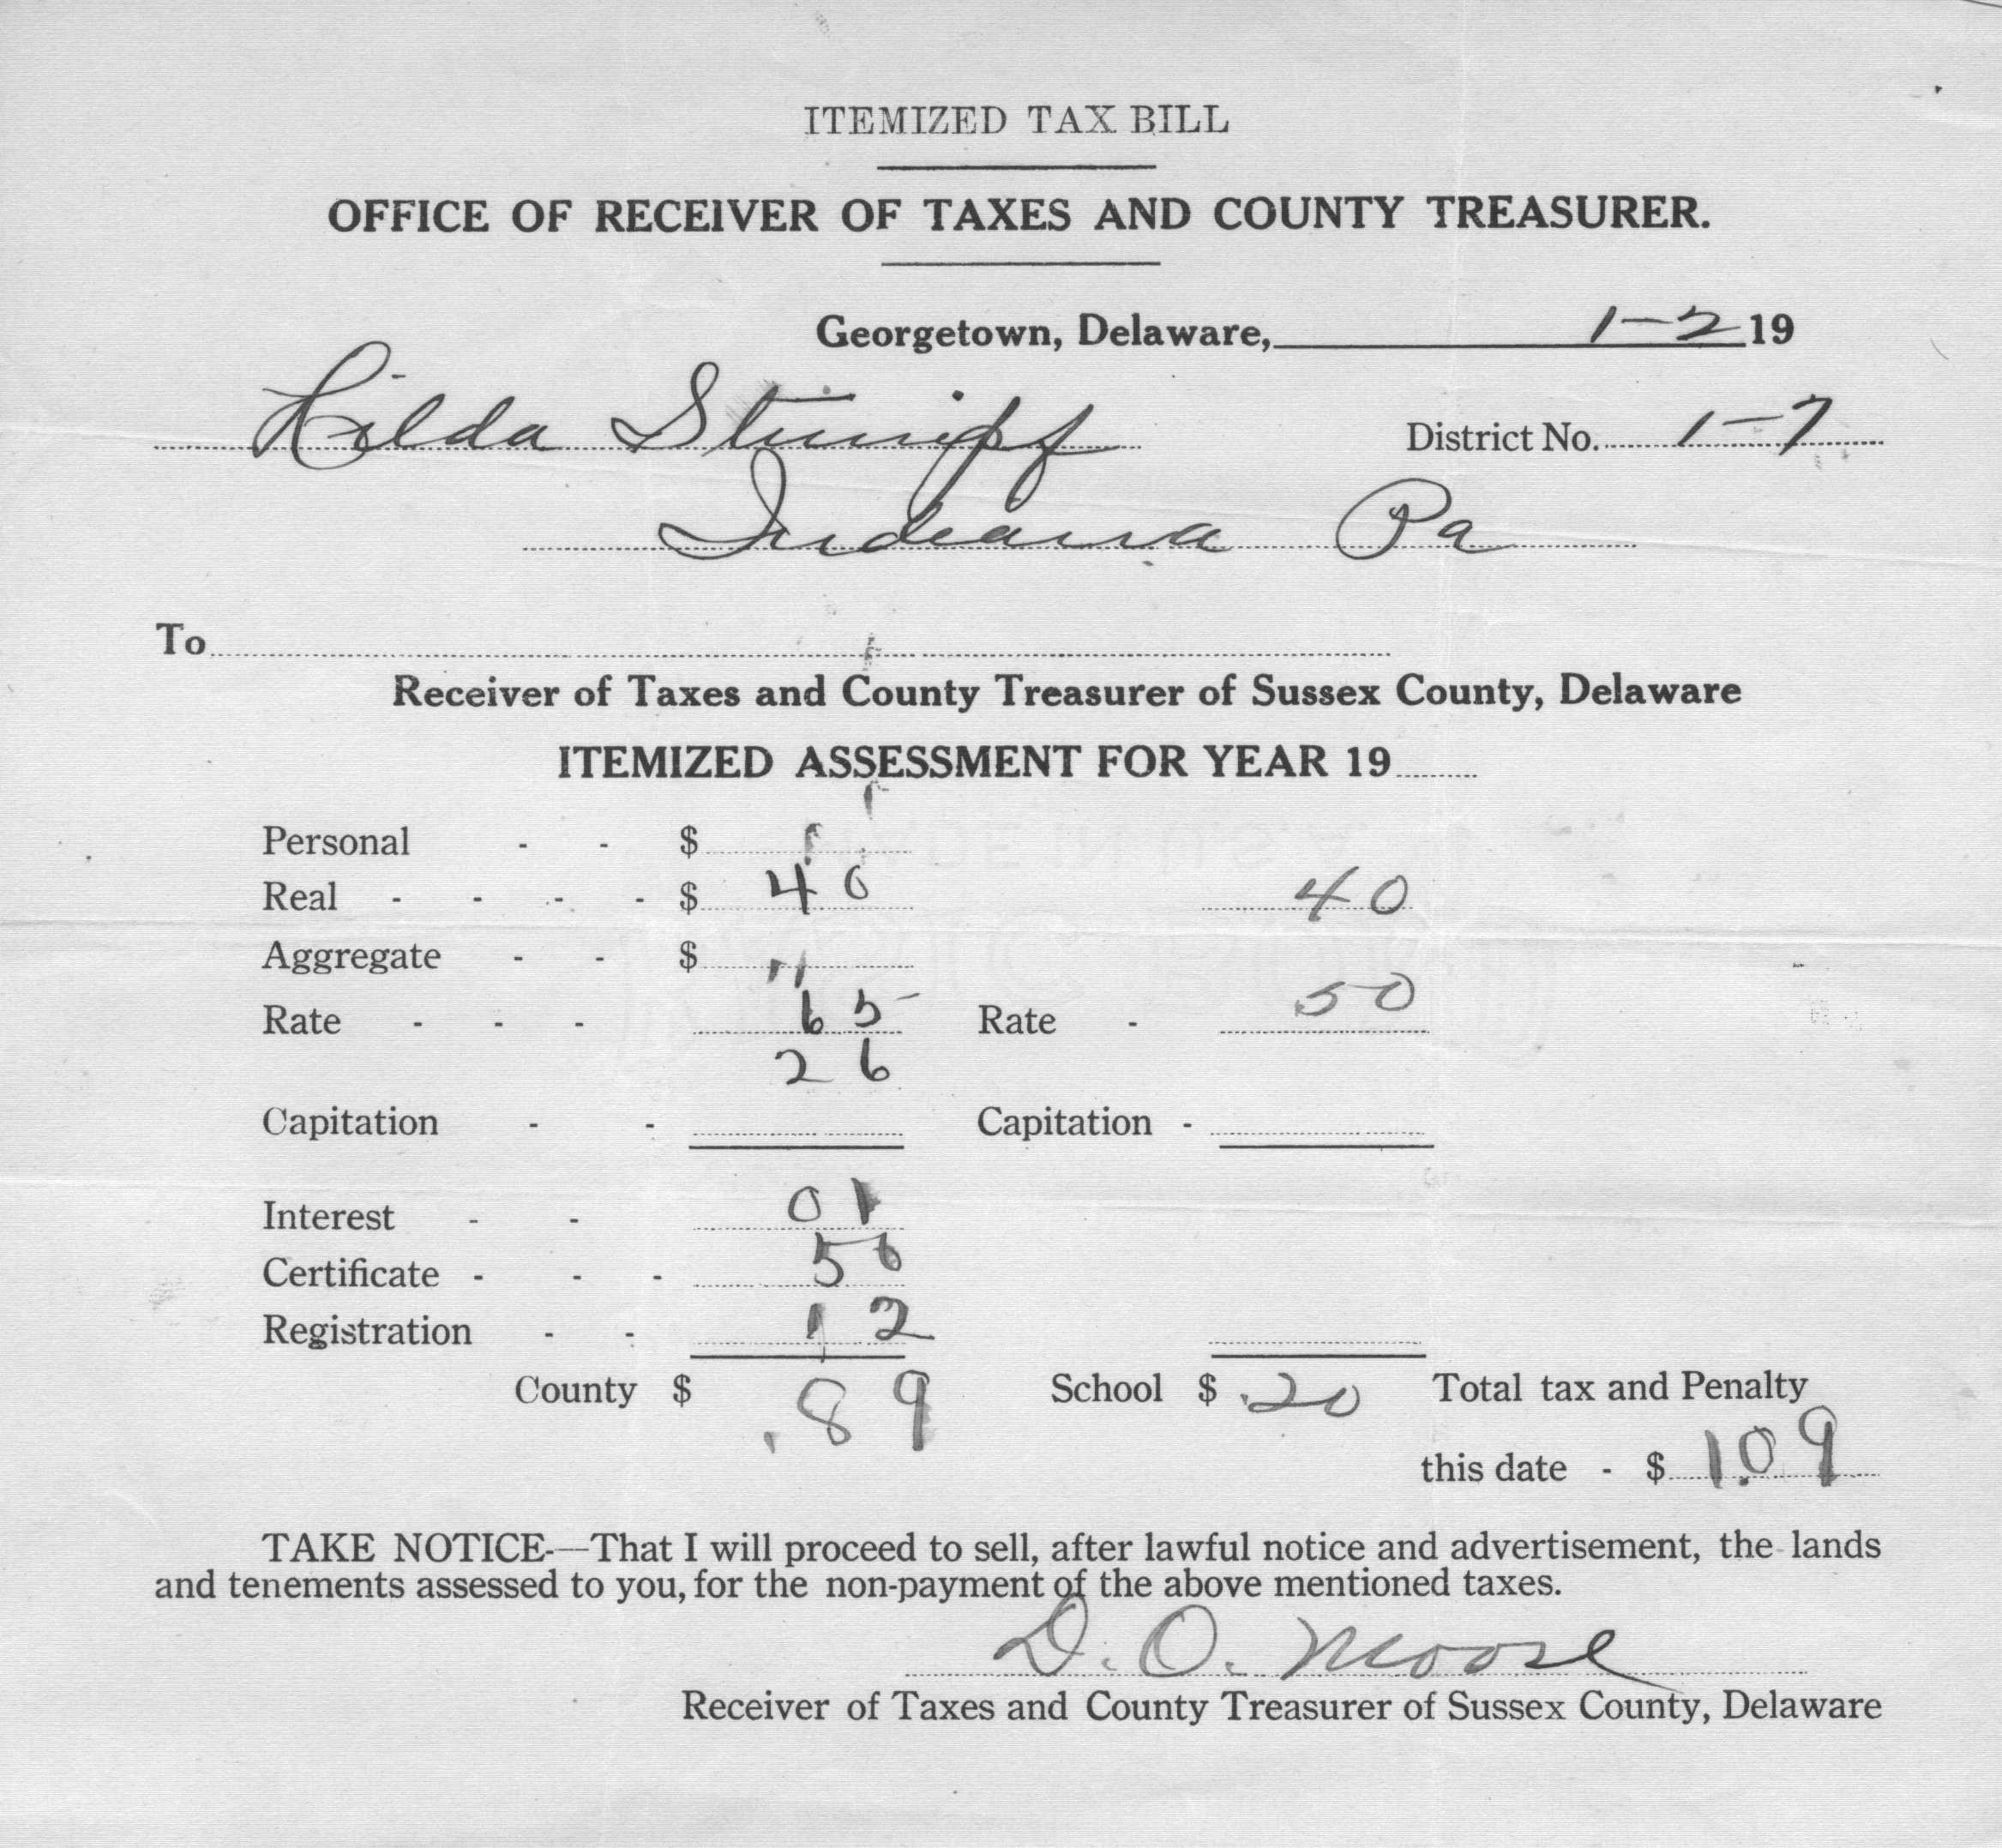 ITEMIZED TAX BILL
OFFICE OF RECEIVER OF TAXES AND COUNTY TREASURER.
Georgetown, Delaware, 1-2 19
Hilda District No. 1-7
Indiana Pa
To
Receiver of Taxes and County Treasurer of Sussex County, Delaware
ITEMIZED ASSESSMENT FOR YEAR 19
Personal - - $
Real - - - - $ 40 40
Aggregate - - $ "
Rate - - - 65 Rate - 50
26
Capitation - - Capitation -
Interest - - 01
Certificate - - - 50
Registration - - 12
County $ .89 School $ .20 Total tax and Penalty
this date - $ 1.09
TAKE NOTICE-—That I will proceed to sell, after lawful notice and advertisement, the lands
and tenements assessed to you, for the non-payment of the above mentioned taxes.
D. O. Moore
Receiver of Taxes and County Treasurer of Sussex County, Delaware